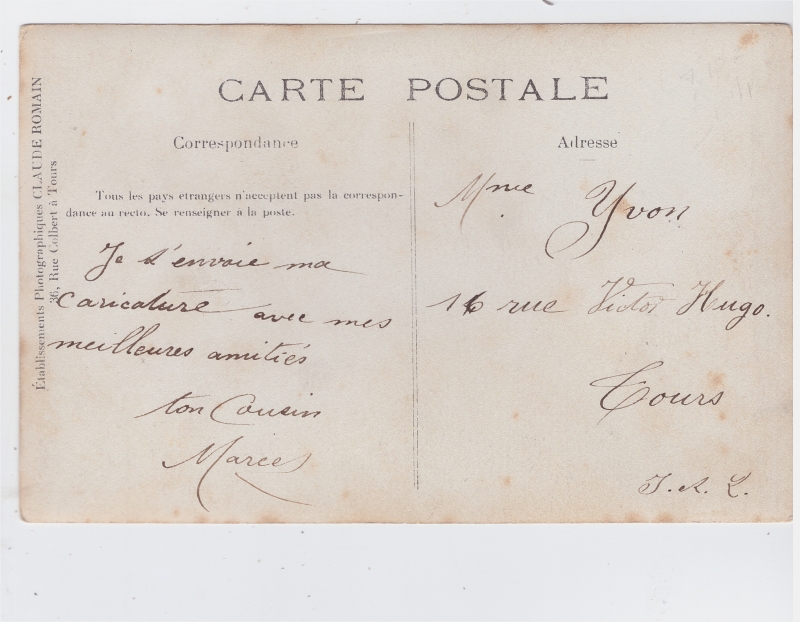 CARTE POSTALE
Correspondance
Tous les pays étrangers n'acceptent pas la correspon-
dance au recto. Se renseigner à la poste.
Je t'envoie ma
caricature avec mes
meilleures amitiés
ton Cousin
Marcel
Adresse
Mme Yvon
16 rue Victor Hugo.
Tours
I. et L.
Établissements Photographiques CLAUDE ROMAIN
36, Rue Colbert à Tours